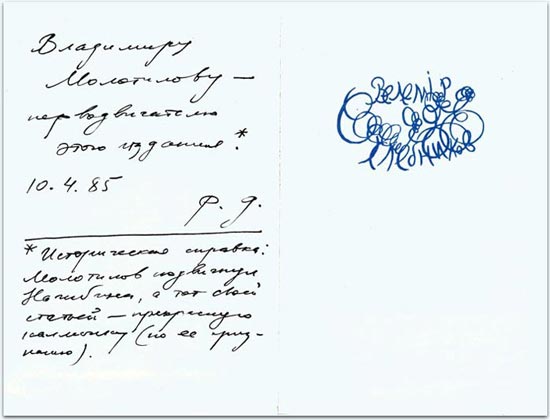 Владимиру
Молотилову —
перводвигателю
этого издания.*
10.4.85
Р. Д.
* Историческая справка:
Молотилов подвигнул
Нагибина, а тот своей
статьей — прекрасную
калмычку (по ее приз-
нанию).
Велемір
Хлебников